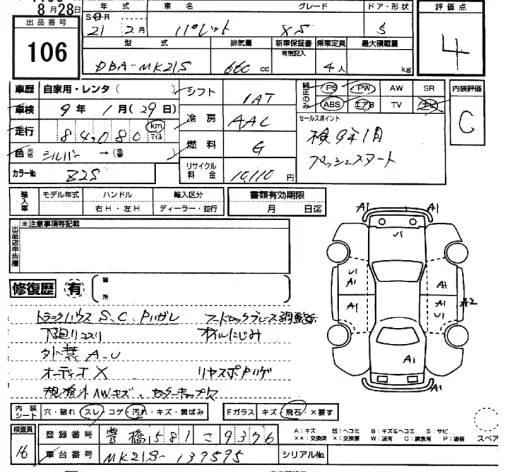 8月28日
出品番号
106
年式
車名
グレード
ドア・形状
評価点
21 2月
パレット
XS
5
4
型式
排気量
新車保証書
有無記入
乗車定員
最大積載量
DBA-MK21S
660 cc
4人
kg
車歴 自家用・レンタ
シフト
IAT
純正のみ
PS PW AW SR
ABS エアB TV
内装評価
C
車検 9年1月(29日)
冷房
AAC
セールスポイント
検9年1月
プッシュスタート
走行 84,080 km マイル
燃料
G
色 シルバー→(番)
カラーNo Z2S
リサイクル
料金
10,110円
輸入車
モデル年式
年
ハンドル
右H・左H
輸入区分
ディーラー・並行
書類有効期限
月 日迄
出品店申告欄
※注意事項等記載
修復歴 有
箇所
トランクハウスS、C、Pハガレ
下廻りコスリ
オイルにじみ
外装A・U
オーディオX
リヤスポハゲ
内装シート
穴・破れ スレ コゲ 汚れ・キズ・黄ばみ
Fガラス キズ 飛石 X要す
検査員
16
登録番号
豊橋581こ9376
車台番号
MK21S-137595
シリアルNo.
A1
A1
U1
U1
A1
A1
A1
A2
A1
A1
A1
A:キズ
U:ヘコミ
B:キズ&ヘコミ
S:サビ
XX:交換済
X:交換要
W:波有
C:腐食有
P:塗装
スペア